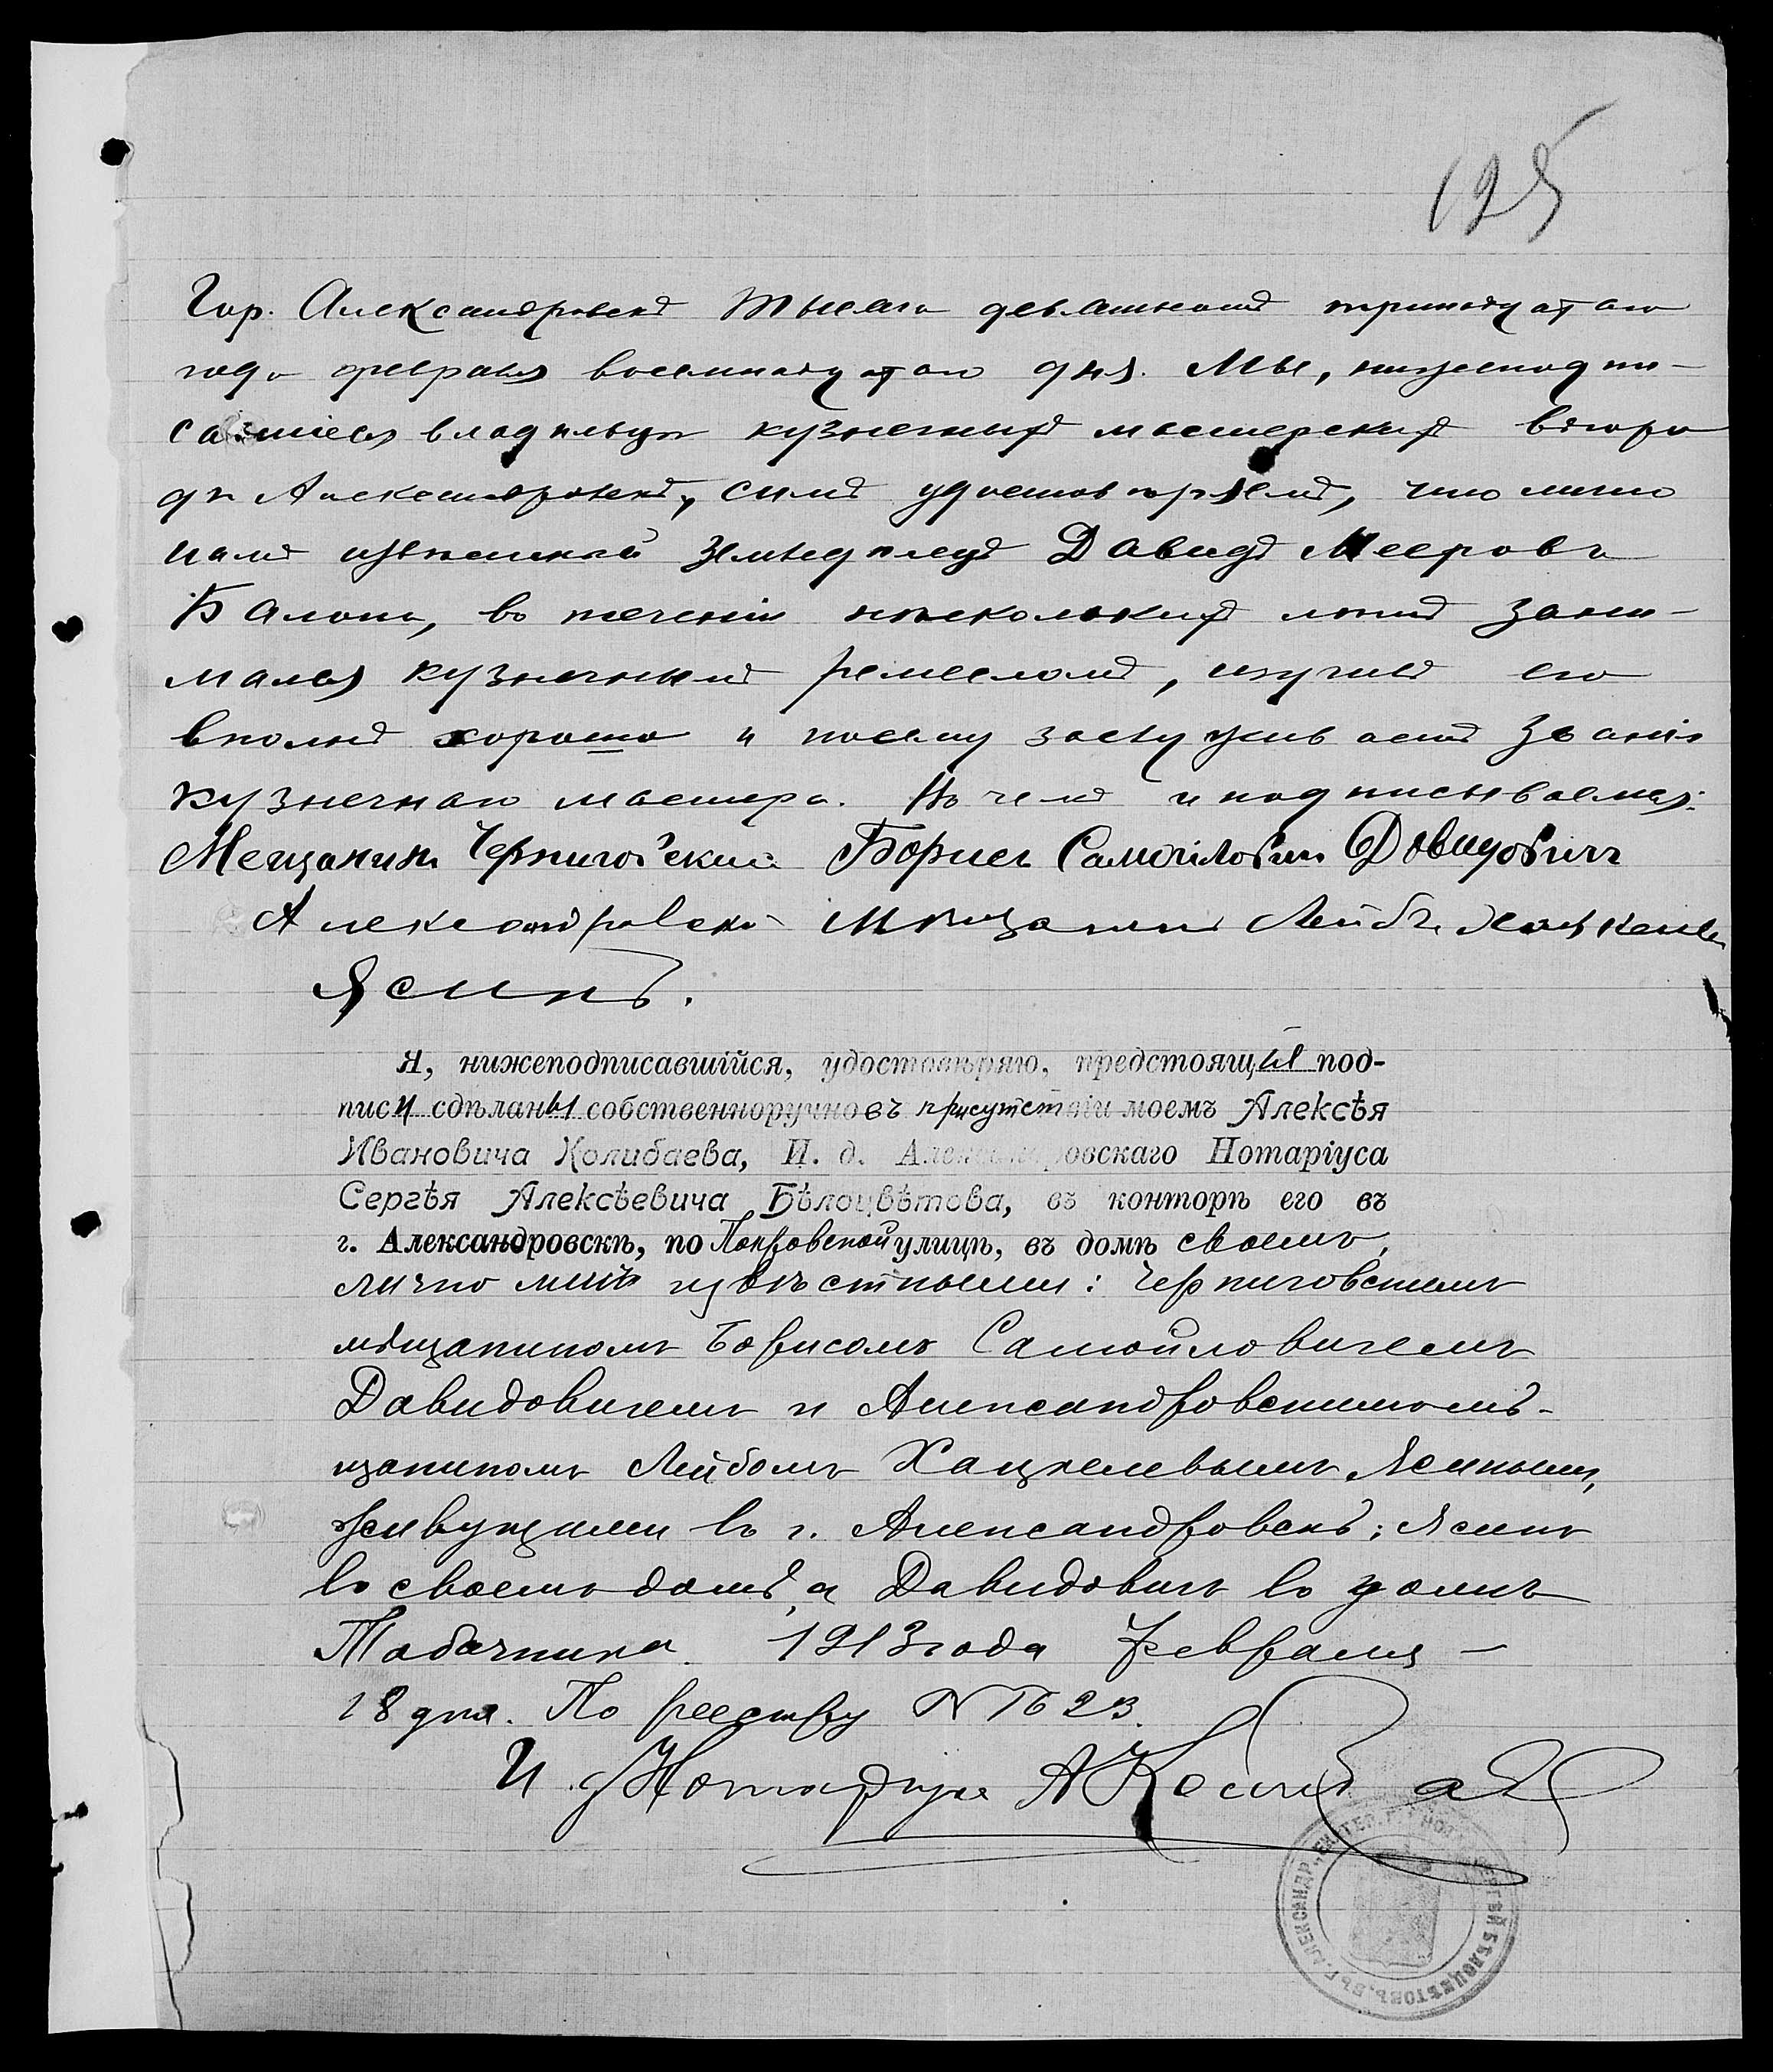 125
Гор. Александровскъ Тысяча девятьсотъ тринадцатаго
года февраля восемнадцатаго дня. Мы, нижеподпи-
савшіеся владѣльцы кузнечныхъ мастерскихъ въ горо
дѣ Александровскѣ, симъ удостовѣряемъ, что лично
намъ извѣстный земледѣлецъ Давидъ Мееровъ
Балонъ, въ теченіи нѣсколькихъ лѣтъ зани-
мался кузнечнымъ ремесломъ, изучилъ его
вполнѣ хорошо и посему заслуживаетъ званія
кузнечнаго мастера. Въ чемъ и подписываемся:
Мещанинъ Черниговскій Борисъ Самойловичъ Давидовичъ
Александровскій Мѣщанинъ Лейба Хацкелевъ
Ясинъ.
Я, нижеподписавшійся, удостовѣряю, предстоящія под-
писи сдѣланы собственноручно въ присутствіи моемъ Алексѣя
Ивановича Колибаева, И. д. Александровскаго Нотаріуса
Сергѣя Алексѣевича Бѣлоцвѣтова, въ конторѣ его въ
г. Александровскѣ, по Покровской улицѣ, въ домѣ своемъ,
лично мнѣ извѣстными: Черниговскимъ
мѣщаниномъ Борисомъ Самойловичемъ
Давидовичемъ и Александровскимъ мѣ-
щаниномъ Лейбомъ Хацкелевымъ Ясинымъ,
живущими въ г. Александровскѣ: Ясинъ
въ своемъ домѣ, а Давидовичъ въ домѣ
Табачника. 1913 года Февраля
18 дня. По реестру № 1623.
И. д. Нотаріуса А Колибаев
ВЪ Г. АЛЕКСАНДР., ЕКАТЕР. Г. НОТ. СЕРГѢЙ БѢЛОЦВѢТОВЪ